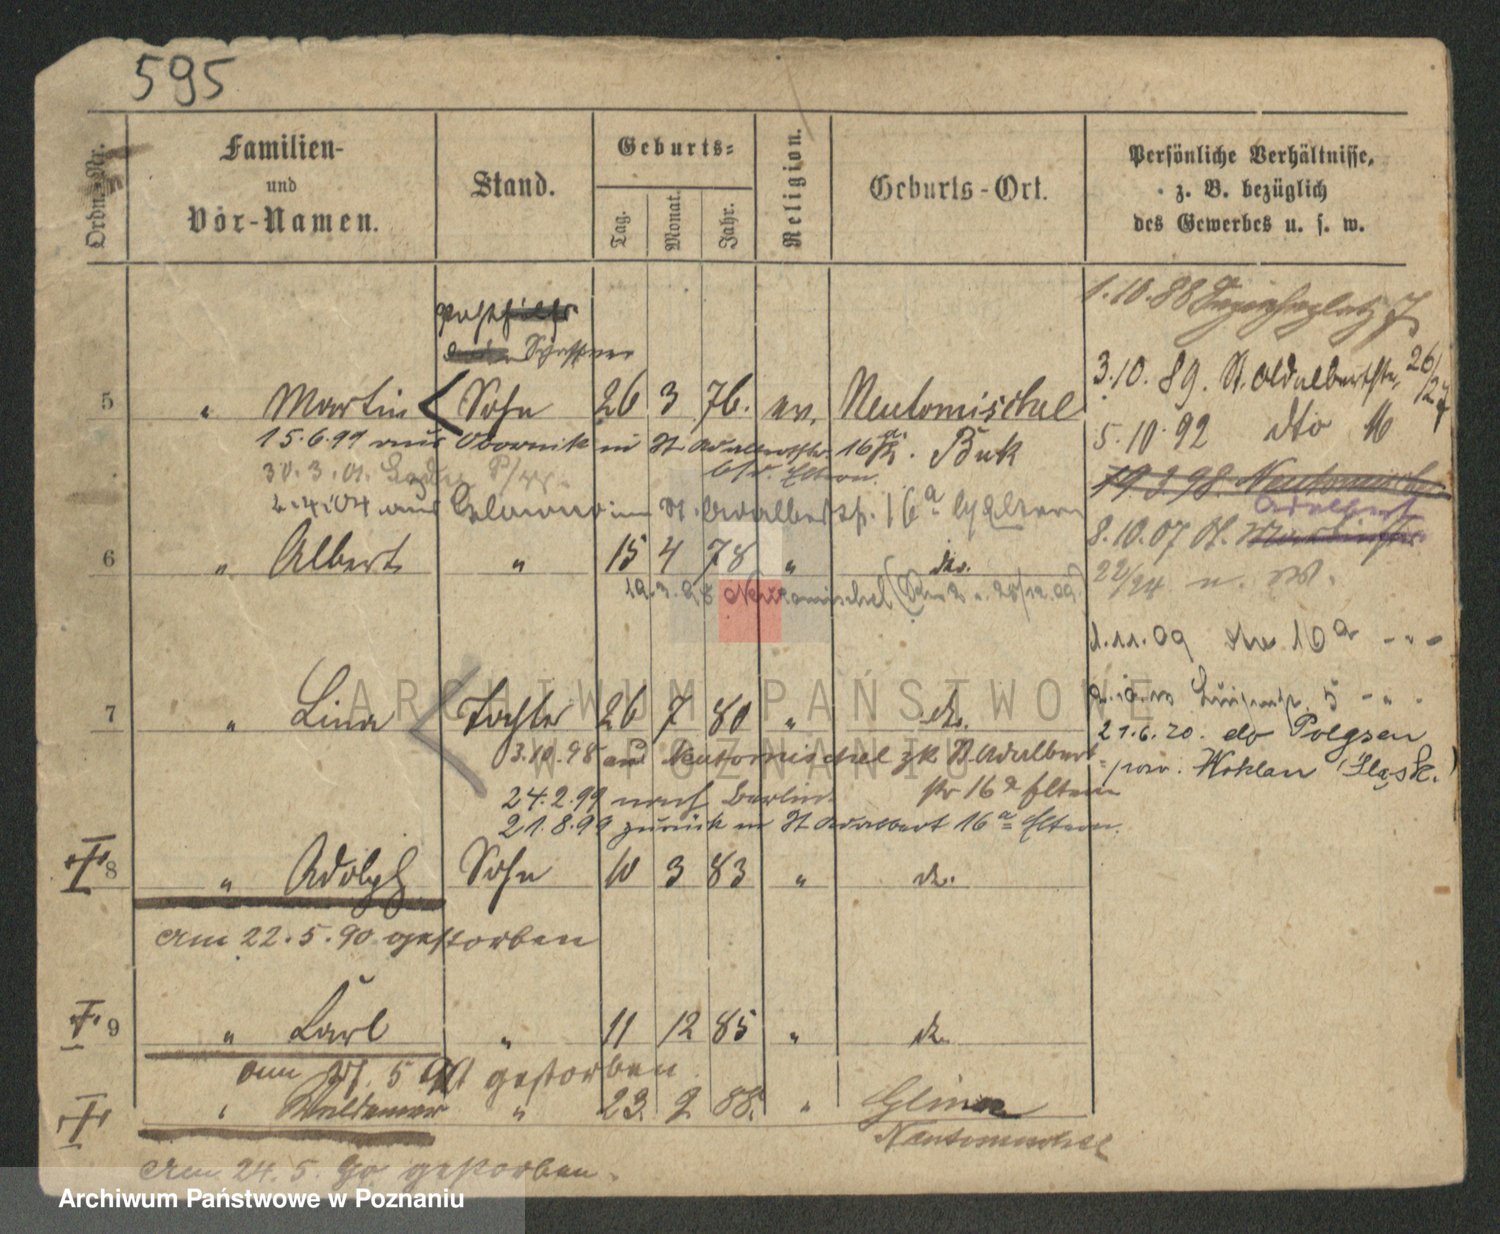 595
Ordn.-Nr.
Familien-
und
Vor-Namen.
Stand.
Geburts-
Tag.
Monat.
Jahr.
Religion.
Geburts-Ort.
Persönliche Verhältnisse,
z. B. bezüglich
des Gewerbes u. s. w.
1.10.88
3.10.89. St. Adalbertstr. 26/27
5.10.92 dto 16
19.3.98. Neutomischel
Adalbert
8.10.07 St. Martinstr.
22/24 u. W.
1.11.09 16a
21.6.20. do Polgsen
pow. Wohlau (Śląsk.)
5 " Martin Sohn 26 3 76. ev. Neutomischel
15.6.99 aus Obornik in St. Adalbertstr. 16a. Buk
bei Eltern.
30.3.01.
2.4.04 aus in St. Adalbertstr. 16a b/Eltern
6 " Albert " 15 4 78 " do.
19.3.98 Neutomischel
7 " Lina Tochter 26 7 80 " do.
3.10.98 aus Neutomischel zk St. Adalbert-
str 16a Eltern
24.2.99 nach Berlin.
21.8.99 zurück in St Adalbert 16a Eltern.
8 " Adolph Sohn 10 3 83 " do.
am 22.5.90 gestorben
9 " Karl " 11 12 85 " do.
am 5 gestorben.
" Waldemar " 23. 2 88. " Glinau
Neutomischel
am 24.5.90 gestorben.
ARCHIWUM PAŃSTWOWE
W POZNANIU
Archiwum Państwowe w Poznaniu